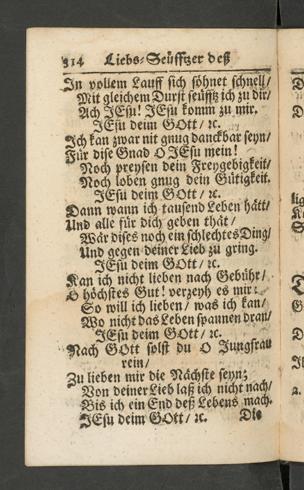 314 Liebs-Seüfftzer deß
In vollem Lauff sich söhnet schnell/
Mit gleichem Durst seüfftz ich zu dir/
Ach JEsu! JEsu komm zu mir.
JEsu deim GOtt/ ꝛc.
Ich kan zwar nit gnug danckbar seyn/
Für dise Gnad O JEsu mein!
Noch preysen dein Freygebigkeit/
Noch loben gnug dein Gütigkeit.
JEsu deim GOtt/ ꝛc.
Dann wann ich tausend Leben hätt/
Und alle für dich geben thät/
Wär dises noch ein schlechtes Ding/
Und gegen deiner Lieb zu gring.
JEsu deim GOtt/ ꝛc.
Kan ich nicht lieben nach Gebühr/
O höchstes Gut! verzeyh es mir:
So will ich lieben/ was ich kan/
Wo nicht das Leben spannen dran/
JEsu deim GOtt/ ꝛc.
Nach GOtt solst du O Jungfrau
rein/
Zu lieben mir die Nächste seyn;
Von deiner Lieb laß ich nicht nach/
Bis ich ein End deß Lebens mach.
JEsu deim GOtt/ ꝛc. Die